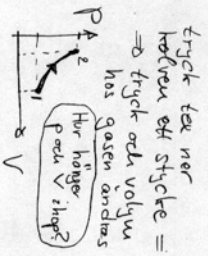 tryck tex ner
kolven ett stycke =
⇒ tryck och volym
hos gasen ändras
Hur hänger
p och V ihop?
P
2
1
V